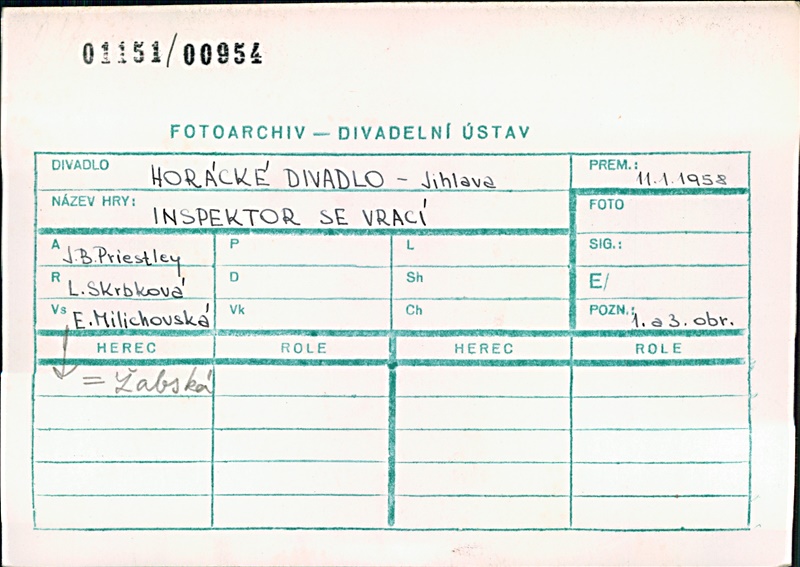 01151/00954
FOTOARCHIV — DIVADELNÍ ÚSTAV
DIVADLO HORÁCKÉ DIVADLO - Jihlava PREM.: 11.1.1958
NÁZEV HRY: INSPEKTOR SE VRACÍ FOTO
A J.B.Priestley P L SIG.:
R L.Skrbková D Sh E/
Vs E.Milichovská Vk Ch POZN.: 1. a 3. obr.
HEREC ROLE HEREC ROLE
= Žabská